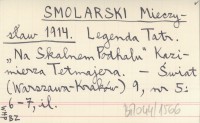 SMOLARSKI Mieczy-
sław 1914. Legenda Tatr.
„Na Skalnem Podhalu" Kazi-
mierza Tetmajera. — Świat
(Warszawa-Kraków) 9, nr 5:
6-7, il.
WHP BZ